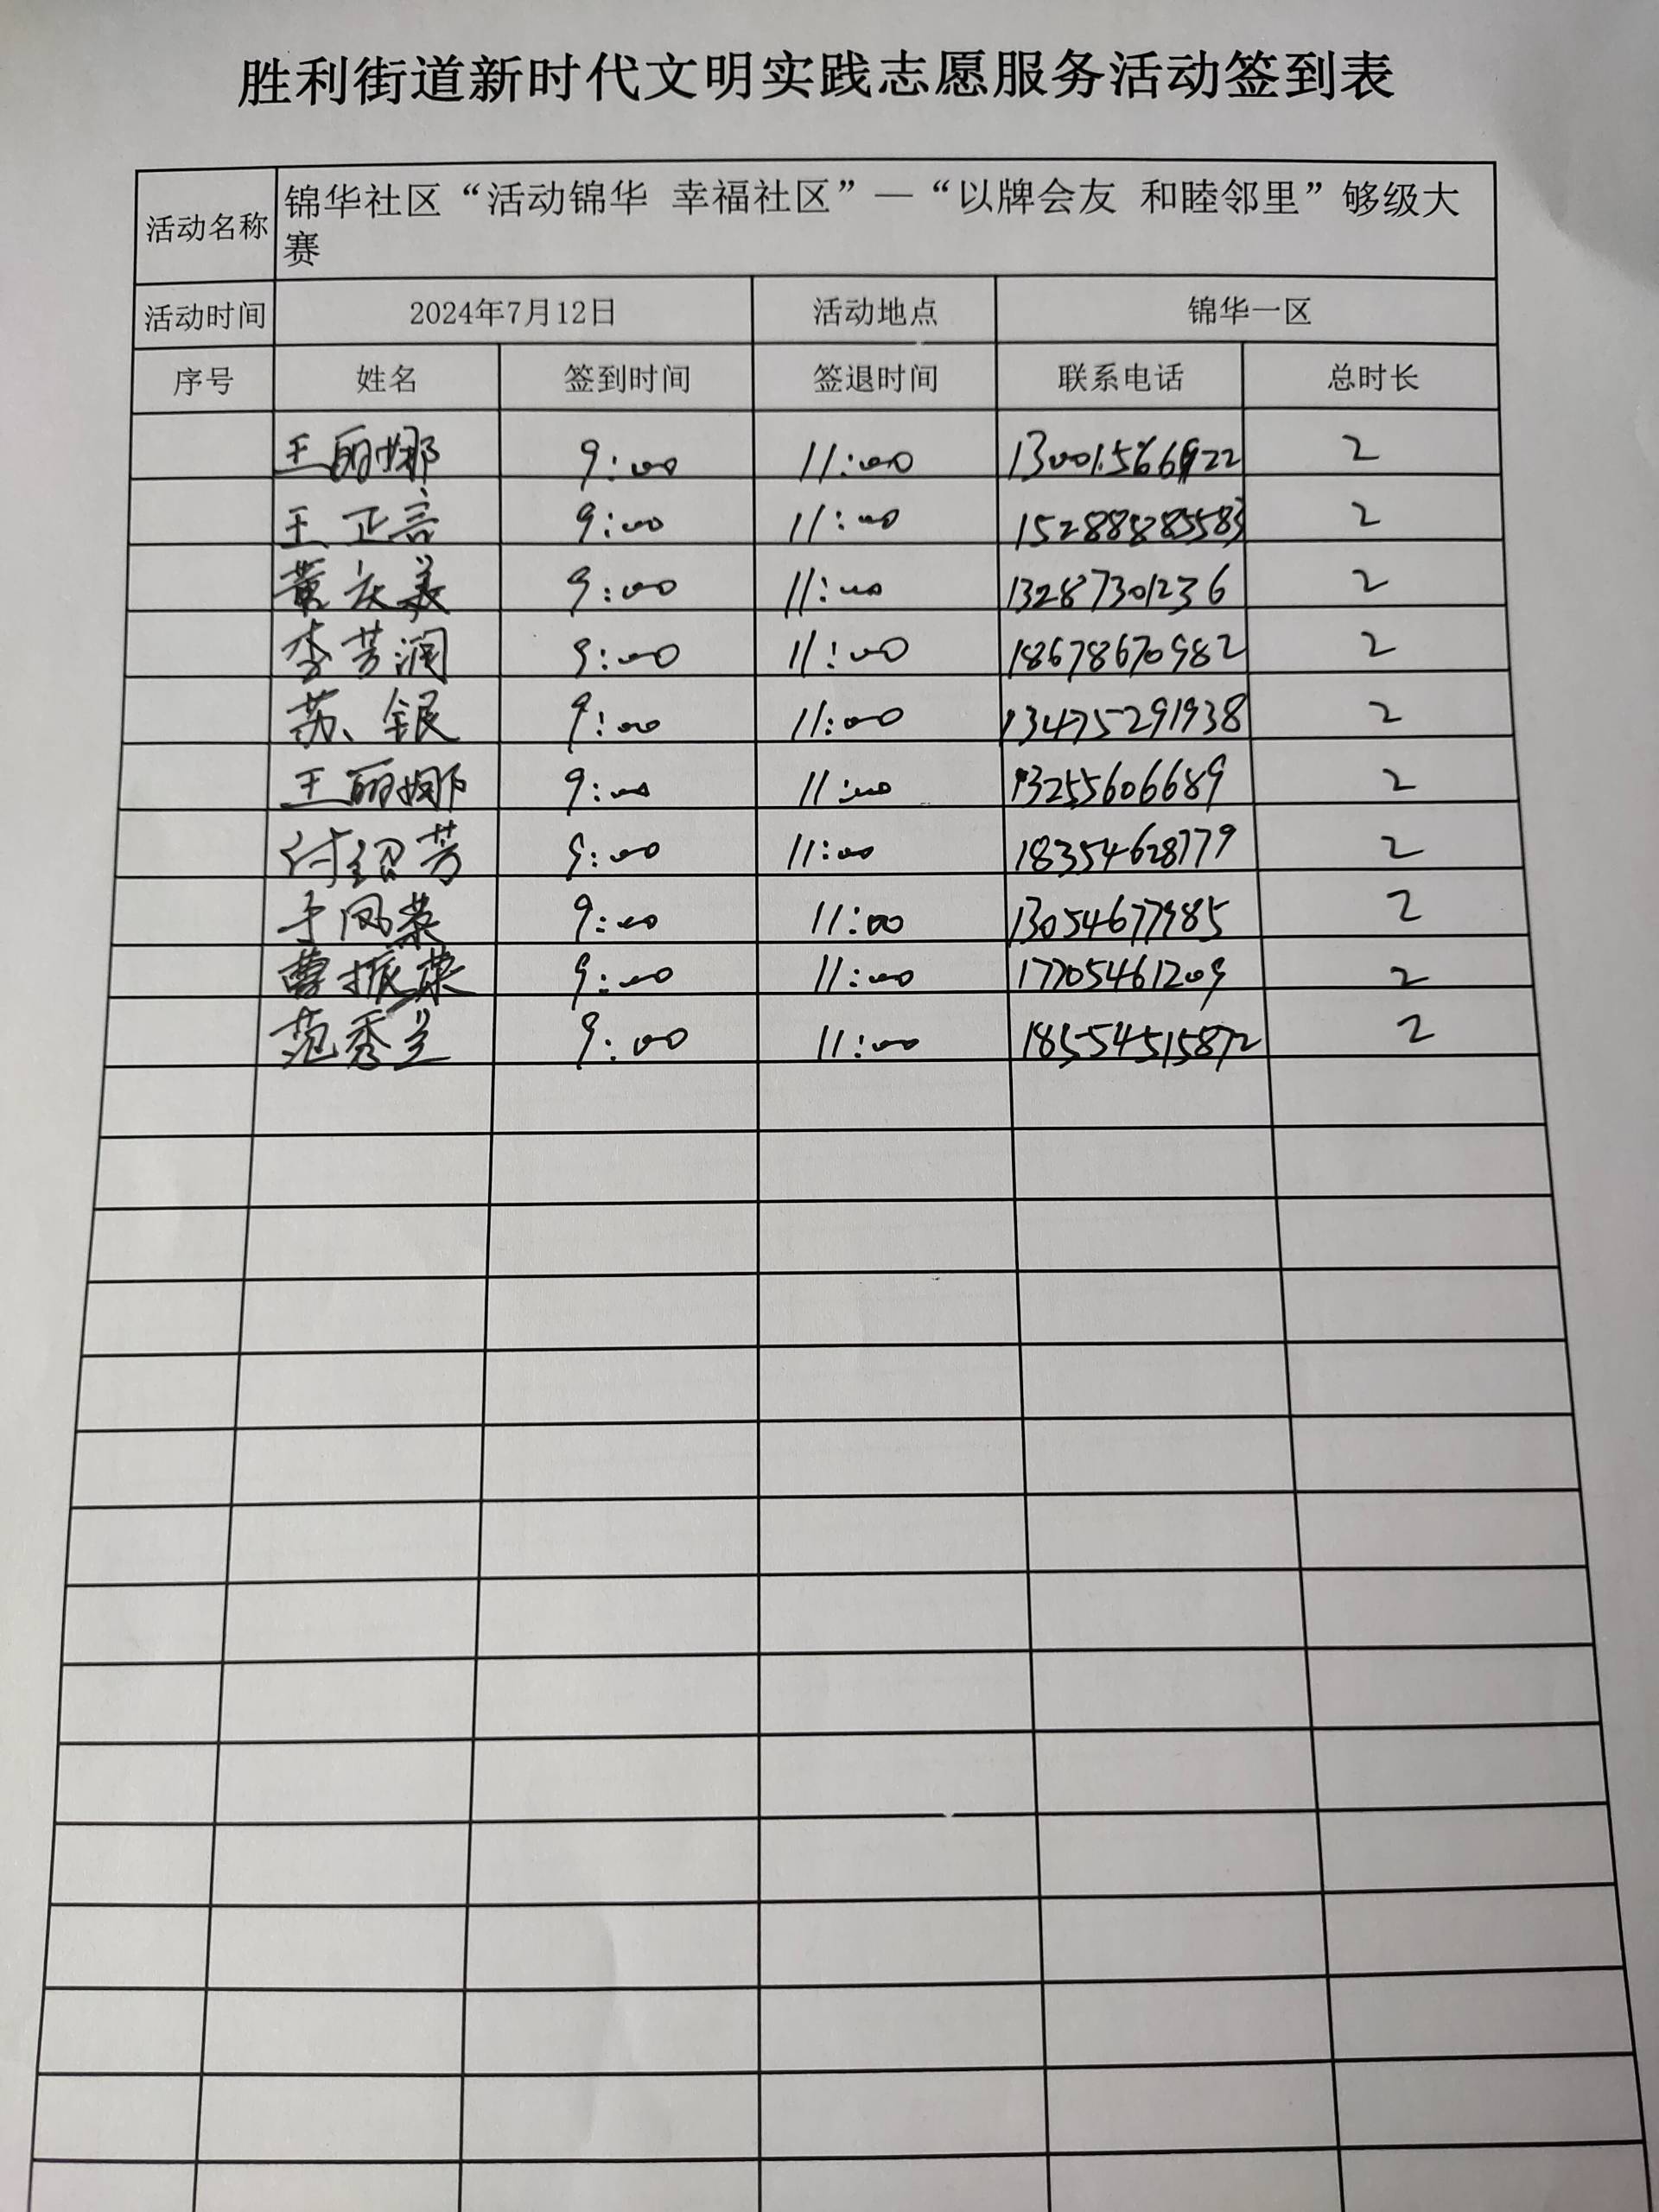 胜利街道新时代文明实践志愿服务活动签到表
活动名称 锦华社区“活动锦华 幸福社区”—“以牌会友 和睦邻里”够级大
赛
活动时间 2024年7月12日 活动地点 锦华一区
序号 姓名 签到时间 签退时间 联系电话 总时长
王丽娜 9:00 11:00 2
王正言 9:00 11:00 15288828558 2
黄庆美 9:00 11:00 13287301236 2
李芳润 9:00 11:00 18678670982 2
苏、银 9:00 11:00 13475291938 2
王丽娜 9:00 11:00 13255606689 2
付绍芳 9:00 11:00 18354628779 2
于凤荣 9:00 11:00 13054677985 2
曹振荣 9:00 11:00 17705461209 2
范秀兰 9:00 11:00 18554515872 2